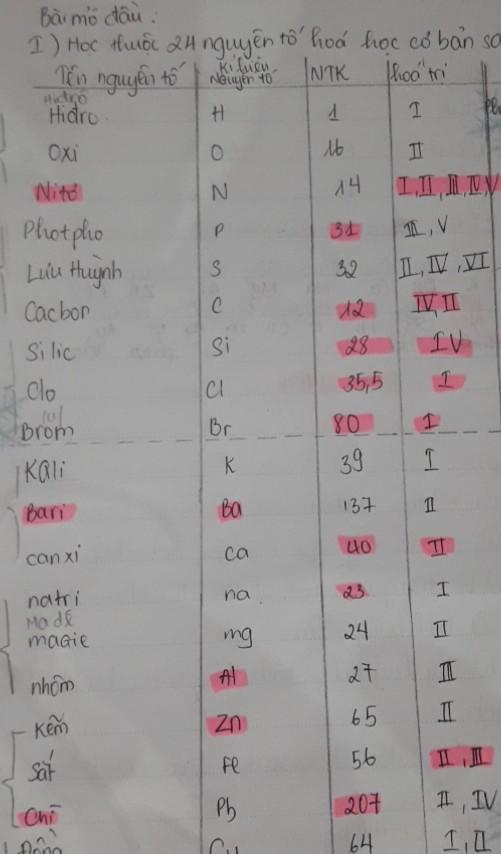 Bài mở đầu :
I) Học thuộc 24 nguyên tố hoá học cơ bản sa
Tên nguyên tố Kí hiệu Nguyên tố NTK hoá trị
Hiđrô
Hiđro H 1 I
Oxi O 16 II
Nitơ N 14 I, II, III, IV V
Photpho P 31 III, V
Lưu Huỳnh S 32 II, IV, VI
Cacbon C 12 IV, II
Silic Si 28 IV
Clo Cl 35,5 I
Brom Br 80 I
Kali K 39 I
Bari Ba 137 II
canxi ca 40 II
natri na 23 I
magie mg 24 II
nhôm Al 27 III
Kẽm Zn 65 II
Sắt Fe 56 II, III
Chì Pb 207 II, IV
Đồng Cu 64 I, II